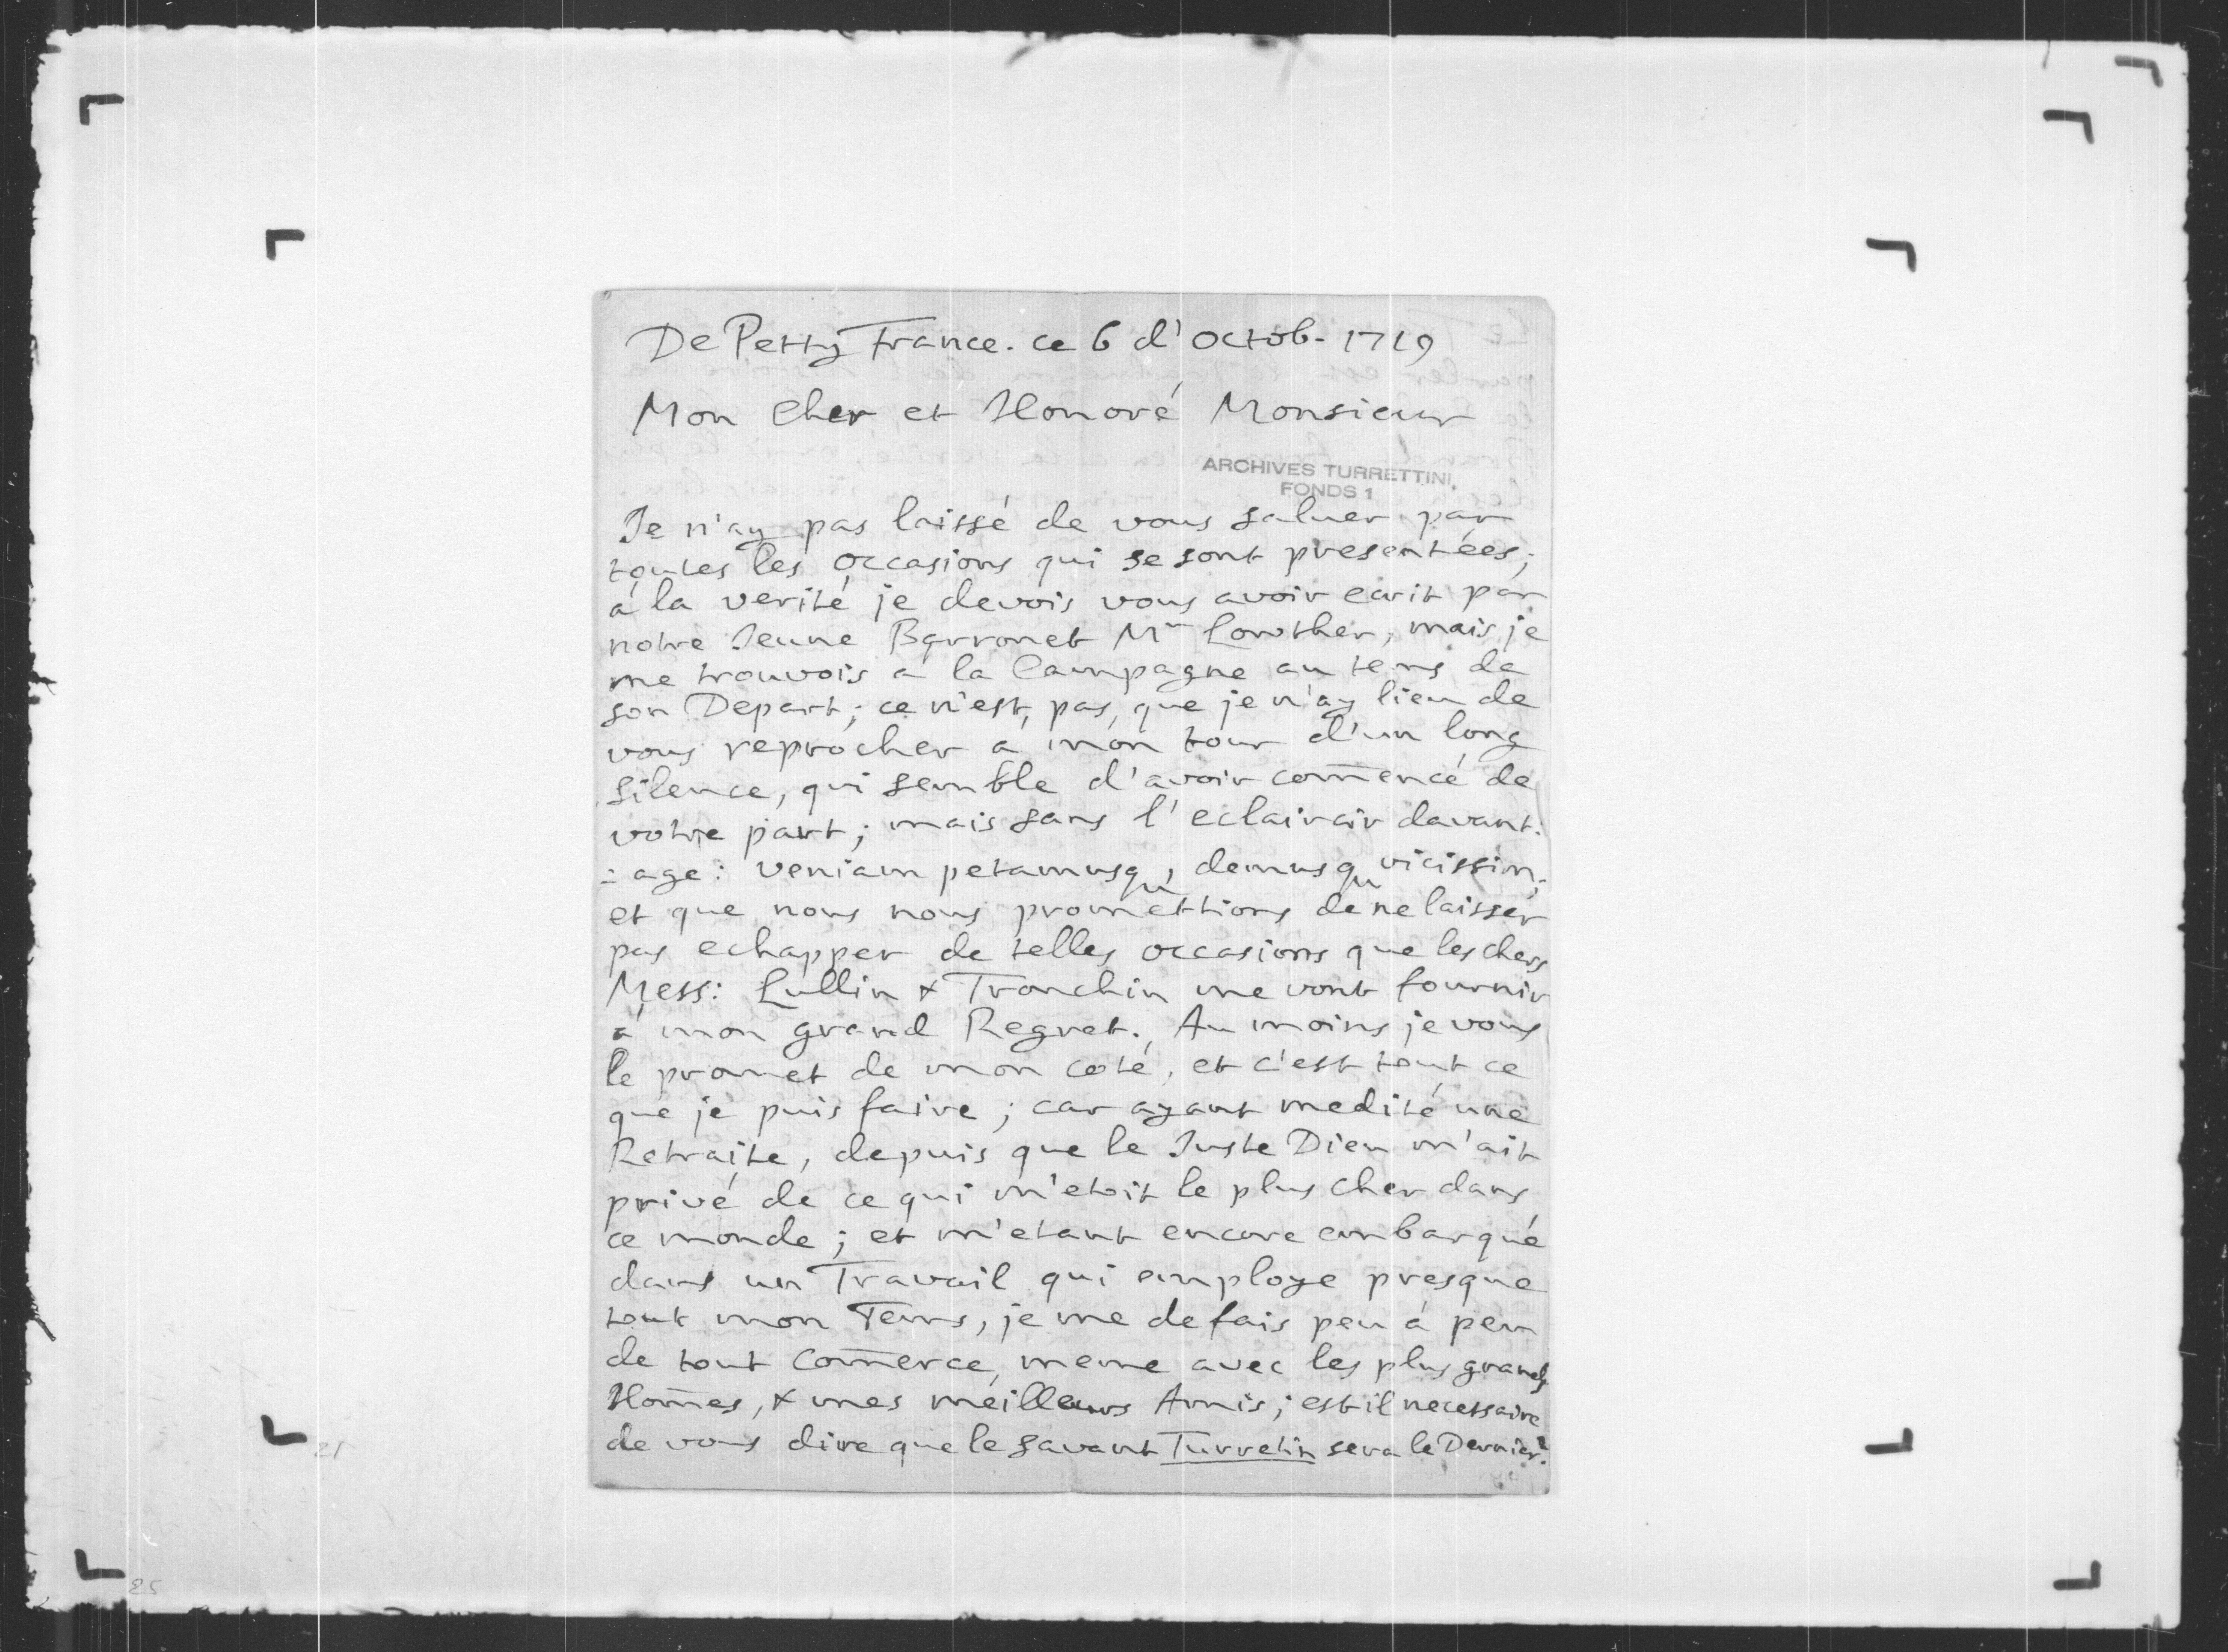 De Petty France. ce 6 d'Octob. 1719
Mon Cher et Honoré Monsieur
ARCHIVES TURRETTINI
FONDS 1
Je n'ay pas laissé de vous saluer par
toutes les occasions qui se sont presentées;
à la verité je devois vous avoir ecrit par
notre Jeune Barronet Mr Lowther, mais je
me trouvois à la Campagne au tems de
son Depart; ce n'est pas, que je n'ay lieu de
vous reprocher a mon tour d'un long
silence, qui semble d'avoir com̄encé de
votre part; mais sans l'eclaircir davant:
:age: veniam petamusqu, demusqu vicissim;
et que nous nous promettions de ne laisser
pas echapper de telles occasions que les chers
Mess: Lullin & Tronchin me vont fournir
à mon grand Regret. Au moins je vous
le promet de mon coté, et c'est tout ce
que je puis faire; car ayant medité une
Retraite, depuis que le Juste Dieu m'ait
privé de ce qui m'etoit le plus cher dans
ce monde; et m'etant encore embarqué
dans un Travail qui employe presque
tout mon Tems, je me defais peu à peu
de tout Com̄erce, meme avec les plus grands
Hom̄es, & mes meilleurs Amis; est-il necessaire
de vous dire que le savant Turretin sera le Dernier?
21
25